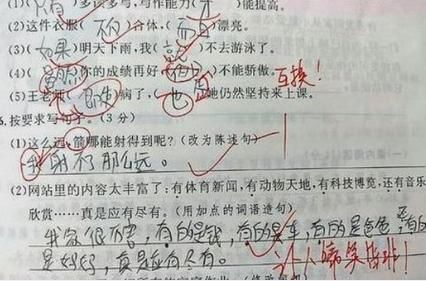 (1)(只有)多读多写,写作能力(才)能提高。
(2)这件衣服(不仅)合体,(而且)漂亮。
(3)(如果)明天下雨,我(就)不去游泳了。
(4)(虽然)你的成绩再好,()不能骄傲。互换!
(5)王老师()病了,(也)她仍然坚持来上课。
6.按要求写句子。(3分)
(1)这么远,箭哪能射得到呢?(改为陈述句)
我射不了那么远。
(2)网站里的内容太丰富了:有体育新闻,有动物天地,有科技博览,还有音乐
欣赏……真是应有尽有。(用加点的词语造句)
我家很厉害,有的是钱,有的是车,有的是爸爸,有的
是妈妈,真是应有尽有。